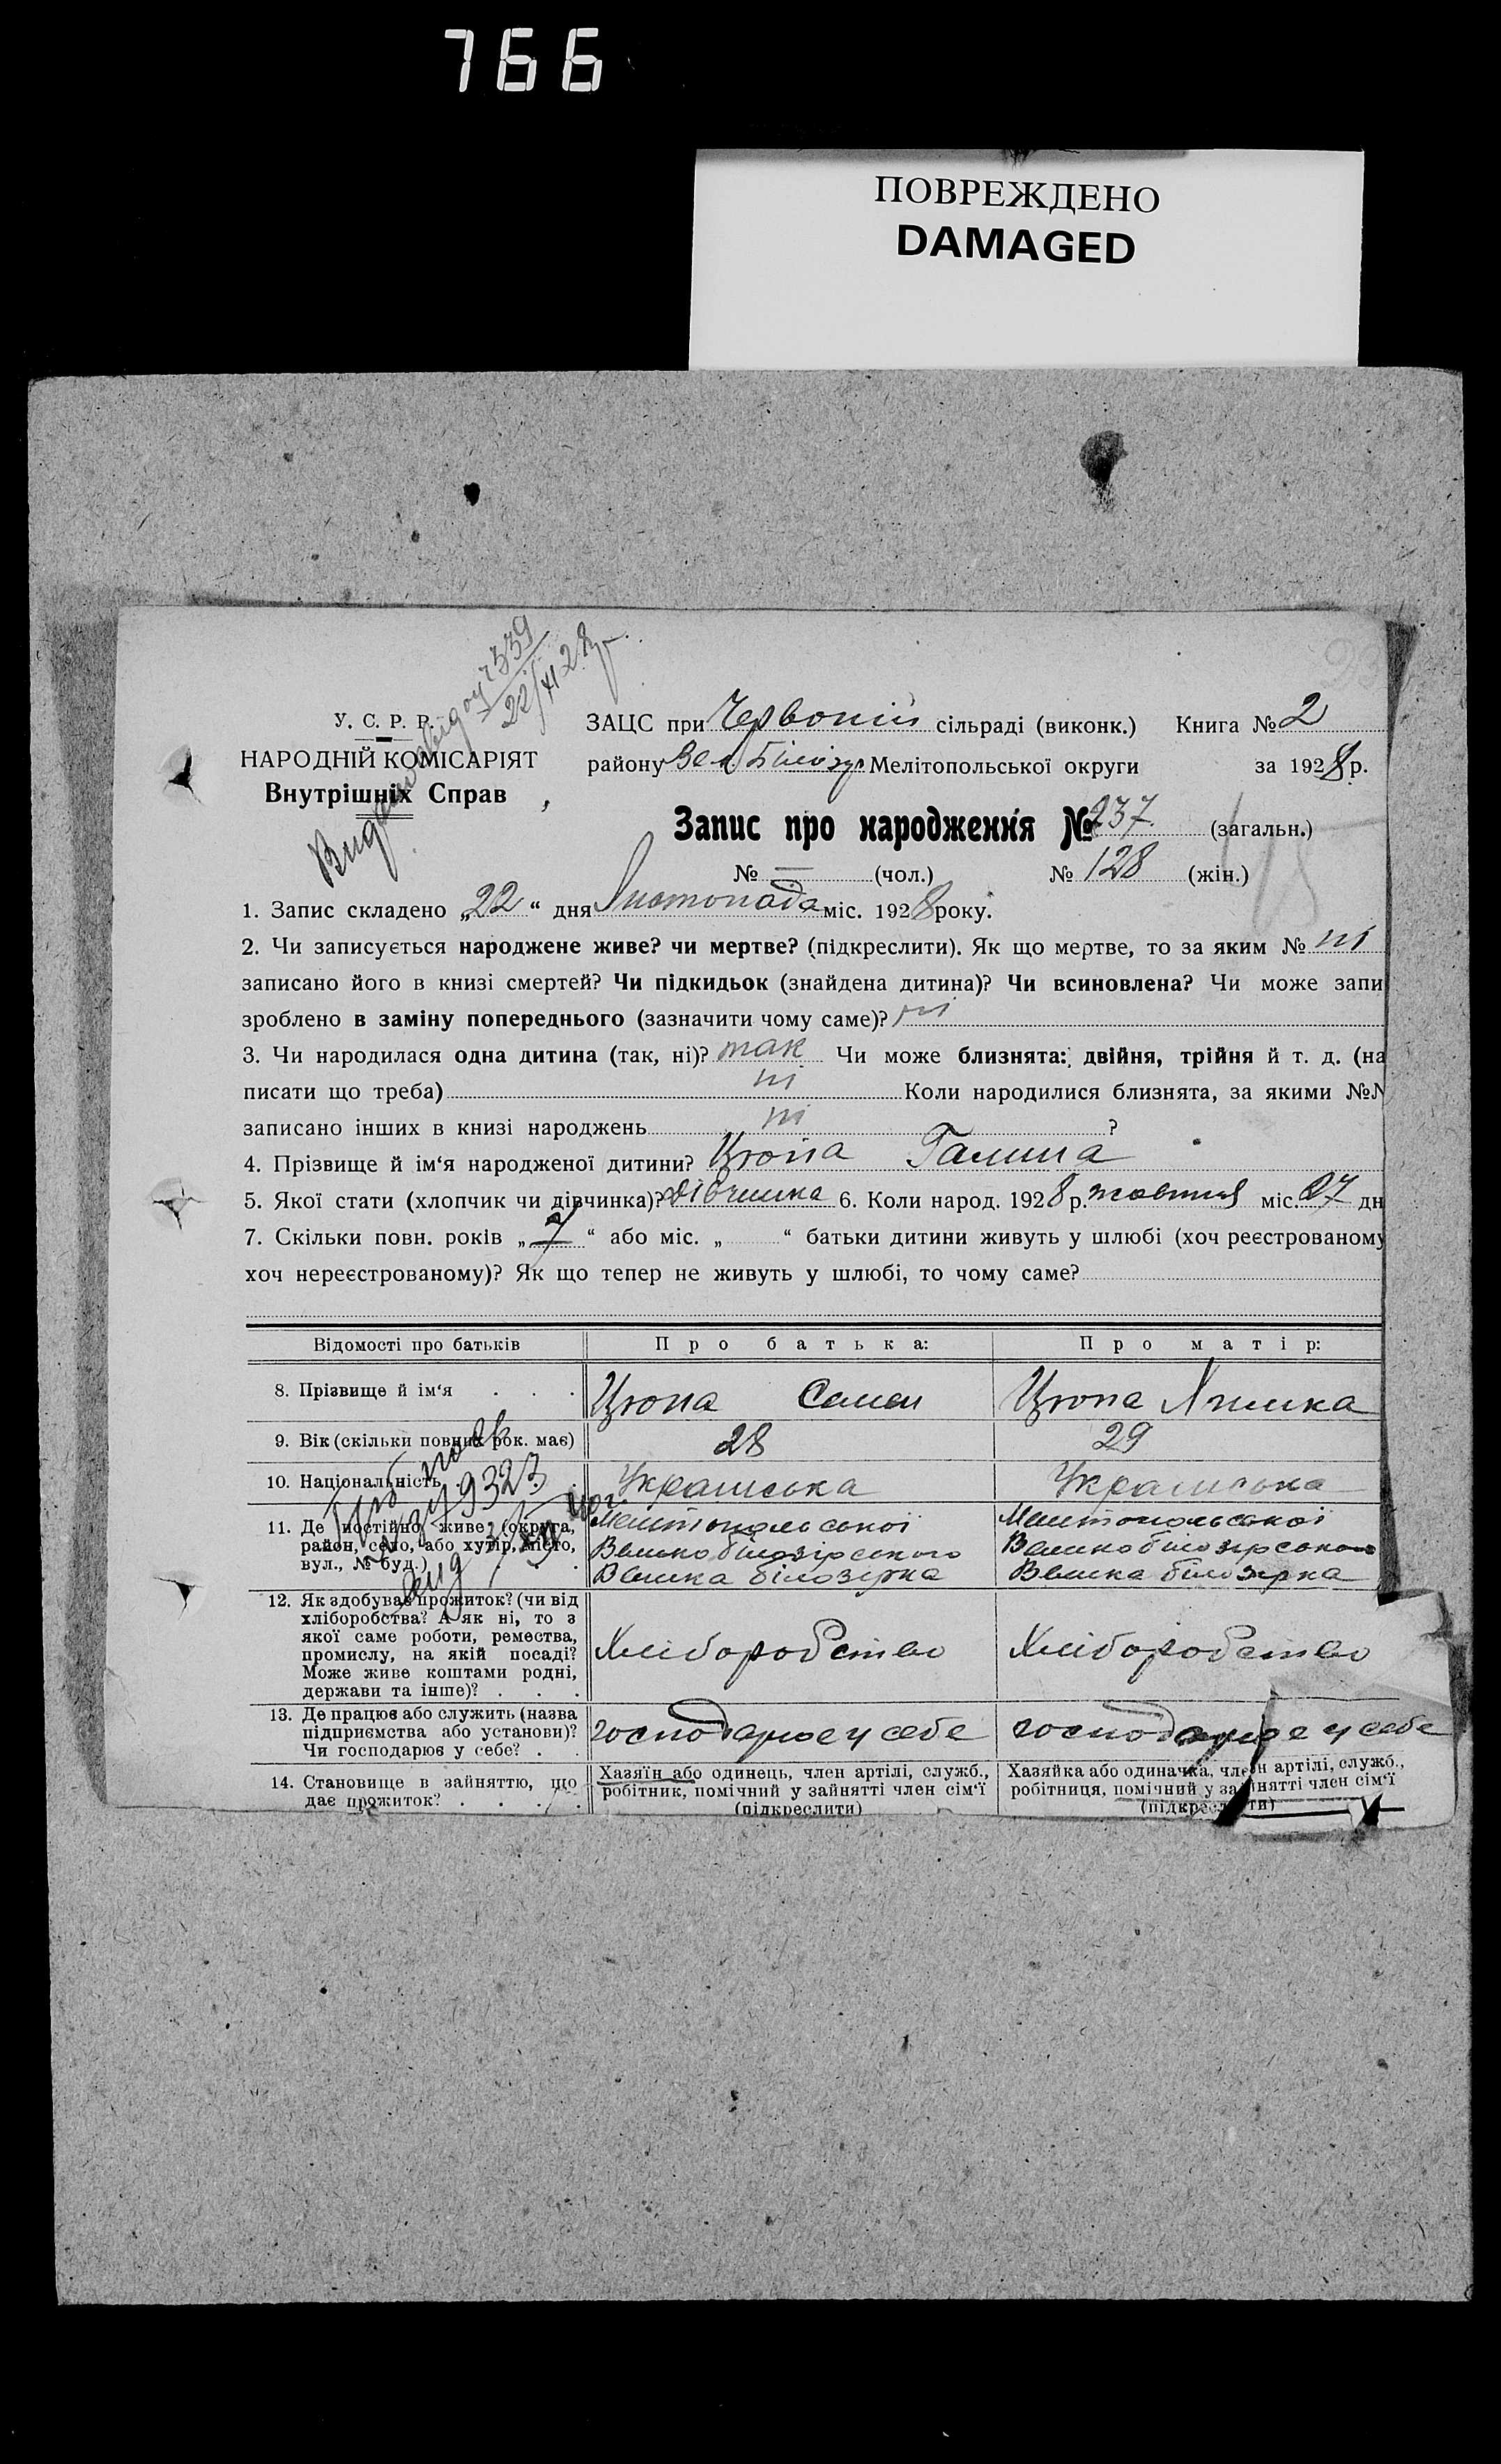 766
ПОВРЕЖДЕНО
DAMAGED
У. С. Р. Р.
НАРОДНІЙ КОМІСАРІЯТ
Внутрішніх Справ
339
22/XI 28 р.
ЗАЦС при Червоній сільраді (виконк.) Книга № 2
району Вел. Білозур Мелітопольської округи за 1928 р.
Запис про народження № 237 (загальн.)
№ — (чол.) № 128 (жін.)
1. Запис складено „22“ дня Листопада міс. 1928 року.
2. Чи записується народжене живе? чи мертве? (підкреслити). Як що мертве, то за яким № ні
записано його в книзі смертей? Чи підкидьок (знайдена дитина)? Чи всиновлена? Чи може запи
зроблено в заміну попереднього (зазначити чому саме)? ні
3. Чи народилася одна дитина (так, ні)? так Чи може близнята: двійня, трійня й т. д. (на
писати що треба) ні Коли народилися близнята, за якими №№
записано інших в книзі народжень ні ?
4. Прізвище й ім‘я народженої дитини? Цюпа Галина
5. Якої стати (хлопчик чи дівчинка)? дівчинка 6. Коли народ. 1928 р. жовтня міс. 27 дн
7. Скільки повн. років „7“ або міс. „ “ батьки дитини живуть у шлюбі (хоч реєстрованому
хоч нереєстрованому)? Як що тепер не живуть у шлюбі, то чому саме?
Відомості про батьків Про батька: Про матір:
8. Прізвище й ім‘я . . . Цюпа Семен Цюпа Ялишка
9. Вік (скільки повних рок. має) 28 29
10. Національність Українська Українська
11. Де постійно живе (округа,
район, село, або хутір, місто,
вул., № буд.)
Мелітопольської
Великобілозірського
Велика білозірка
Мелітопольської
Великобілозірського
Велика білозірка
12. Як здобуває прожиток? (чи від
хліборобства? А як ні, то з
якої саме роботи, ремества,
промислу, на якій посаді?
Може живе коштами родні,
держави та інше)? . . .
Хліборобство Хліборобство
13. Де працює або служить (назва
підприємства або установи)?
Чи господарює у себе? . .
господарює у себе господарює у себе
14. Становище в зайняттю, що
дає прожиток? . . . .
Хазяїн або одинець, член артілі, служб.,
робітник, помічний у зайнятті член сім‘ї
(підкреслити)
Хазяйка або одиначка, член артілі, служб.,
робітниця, помічний у зайнятті член сім‘ї
(підкреслити)